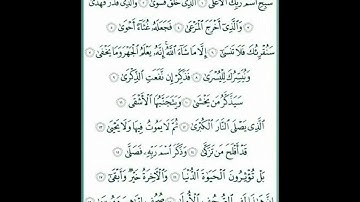 سَبِّحِ ٱسْمَ رَبِّكَ ٱلْأَعْلَى ١ ٱلَّذِى خَلَقَ فَسَوَّىٰ ٢ وَٱلَّذِى قَدَّرَ فَهَدَىٰ ٣
وَٱلَّذِىٓ أَخْرَجَ ٱلْمَرْعَىٰ ٤ فَجَعَلَهُۥ غُثَآءً أَحْوَىٰ ٥
سَنُقْرِئُكَ فَلَا تَنسَىٰٓ ٦ إِلَّا مَا شَآءَ ٱللَّهُ ۚ إِنَّهُۥ يَعْلَمُ ٱلْجَهْرَ وَمَا يَخْفَىٰ ٧
وَنُيَسِّرُكَ لِلْيُسْرَىٰ ٨ فَذَكِّرْ إِن نَّفَعَتِ ٱلذِّكْرَىٰ ٩
سَيَذَّكَّرُ مَن يَخْشَىٰ ١٠ وَيَتَجَنَّبُهَا ٱلْأَشْقَى ١١
ٱلَّذِى يَصْلَى ٱلنَّارَ ٱلْكُبْرَىٰ ١٢ ثُمَّ لَا يَمُوتُ فِيهَا وَلَا يَحْيَىٰ ١٣
قَدْ أَفْلَحَ مَن تَزَكَّىٰ ١٤ وَذَكَرَ ٱسْمَ رَبِّهِۦ فَصَلَّىٰ ١٥
بَلْ تُؤْثِرُونَ ٱلْحَيَوٰةَ ٱلدُّنْيَا ١٦ وَٱلْأَخِرَةُ خَيْرٌ وَأَبْقَىٰٓ ١٧
إِنَّ هَٰذَا لَفِى ٱلصُّحُفِ ٱلْأُولَىٰ ١٨ صُحُفِ إِبْرَٰهِيمَ وَمُوسَىٰ ١٩